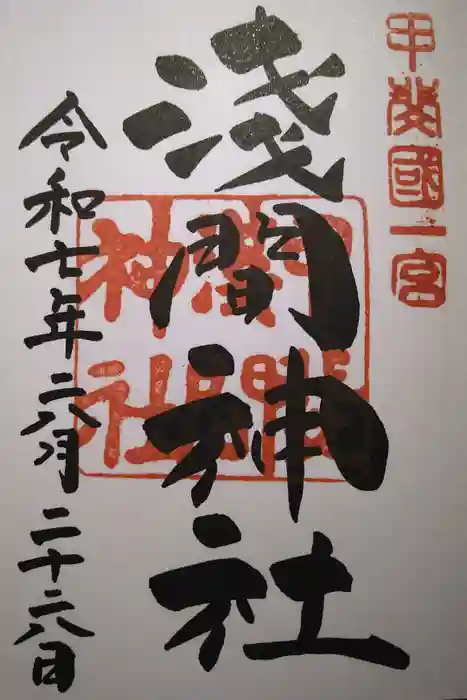 甲斐國一宮
淺間神社
令和七年六月二十六日
神社